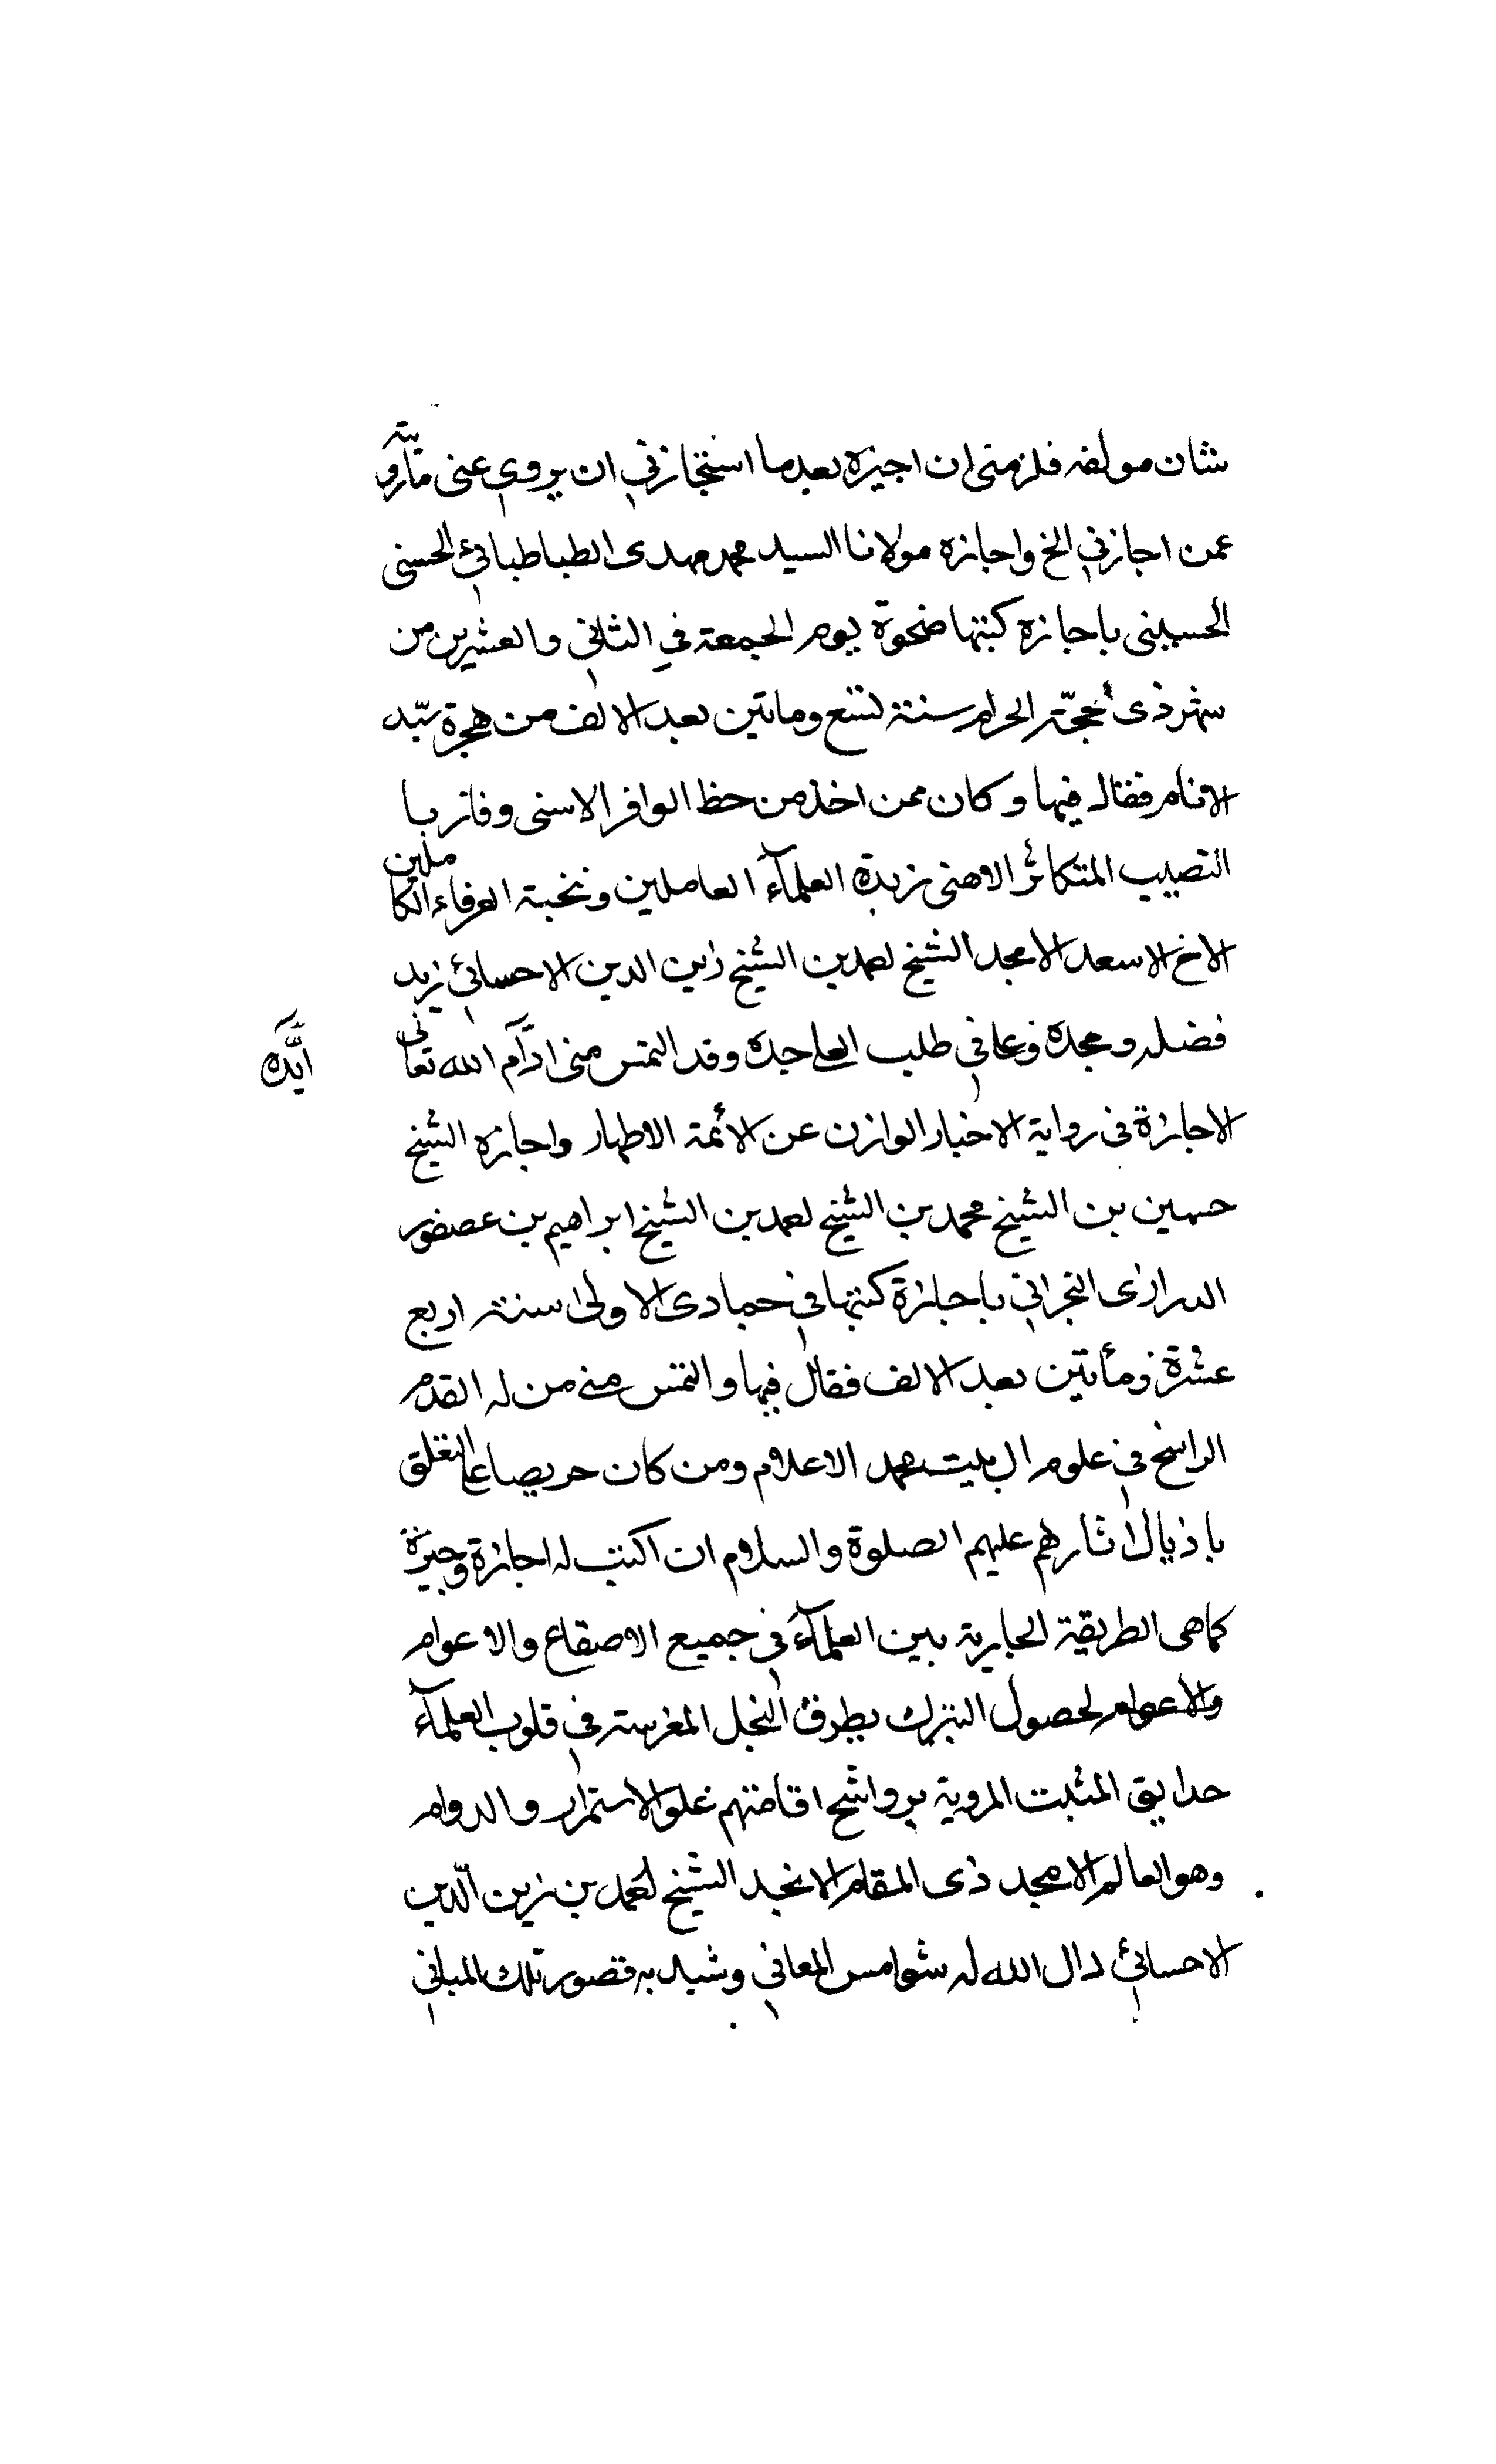 شان مولفه فلزمنى ان اجيزه بعد ما استجازنى ان يروى عنى ما رويته
عمن اجازنى الخ واجازه مولانا السيد محمد مهدى الطباطبائى الحسنى
الحسينى باجازه كتبها ضحوة يوم الجمعة فى الثانى والعشرين من
شهر ذى الحجّة الحرام سنة تسع وماتين بعد الالف من هجرة سيّد
الانام فقال فيها وكان ممن اخذ من حظ الوافر الاسنى وفاز با
النصيب المتكاثر الاهنى زبدة العلمآء العاملين ونخبة العرفاء الكاملين
الاخ الاسعد الامجد الشيخ احمد بن الشيخ زين الدين الاحسائى زيد
فضله ومجده وعلا فى طلب العلى جده وقد التمس منى ادآم الله تعالى
ايَّده
الاجازة فى رواية الاخبار عن الائمة الاطهار واجازه الشيخ
حسين بن الشيخ محمد بن الشيخ احمد بن الشيخ ابراهيم بن عصفور
الدرازى البحرانى باجازة كتبها فى جمادى الاولى سنة اربع
عشرة ومأتين بعد الالف فقال فيها والتمس منى من له القدم
الراسخ فى علوم ال بيت محمد الاعلام ومن كان حريصا على التعلق
باذيال اثارهم عليهم الصلوة والسلام ان اكتب له اجازة وجيزة
كما هى الطريقة الجارية بين العلمآء فى جميع الاصقاع والاعوام
والاعوام لحصول التبرك بطرق المغرسة فى قلوب العلمآء
حدايق المثبت المروية برواشح افاضتهم على الاستمرار والدوام
وهو العالم الامجد ذى المقام الانجد الشيخ احمد بن زين الدّين
الاحسائى ذلل الله له شوامس المعانى وشيد به قصور تلك المبانى